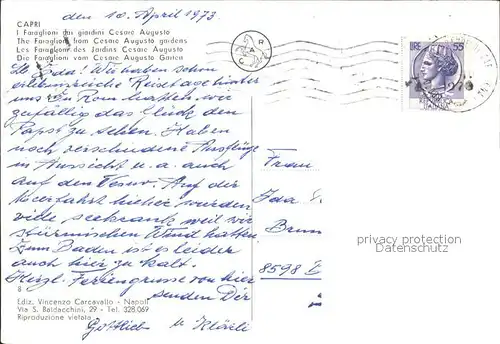 den 10. April 1973
CAPRI
I Faraglioni dai giardini Cesare Augusto
The Faraglioni from Cesare Augusto gardens
Les Faraglioni des Jardins Cesare Augusto
Die Faraglioni vom Cesare Augusto Garten
Lb. Ida! Wir haben schon
erlebnisreiche Reisetage hinter
uns. In Rom hatten wir
zufällig das Glück den
Papst zu sehen. Haben
noch verschiedene Ausflüge
in Aussicht u. a. auch
auf den Vesuv. Auf der
Meerfahrt hieher wurden
viele seekrank weil wir
stürmischen Wind hatten
Zum Baden ist es leider
auch hier zu kalt.
Herzl. Feriengrüsse von hier
senden Dir
Gottlieb u Klärli
8
Ediz. Vincenzo Carcavallo - Napoli
Via S. Baldacchini, 29 - Tel. 328.069
Riproduzione vietata
CAR
LIRE 55
Frau
Ida
Brun
8598
privacy protection
Datenschutz